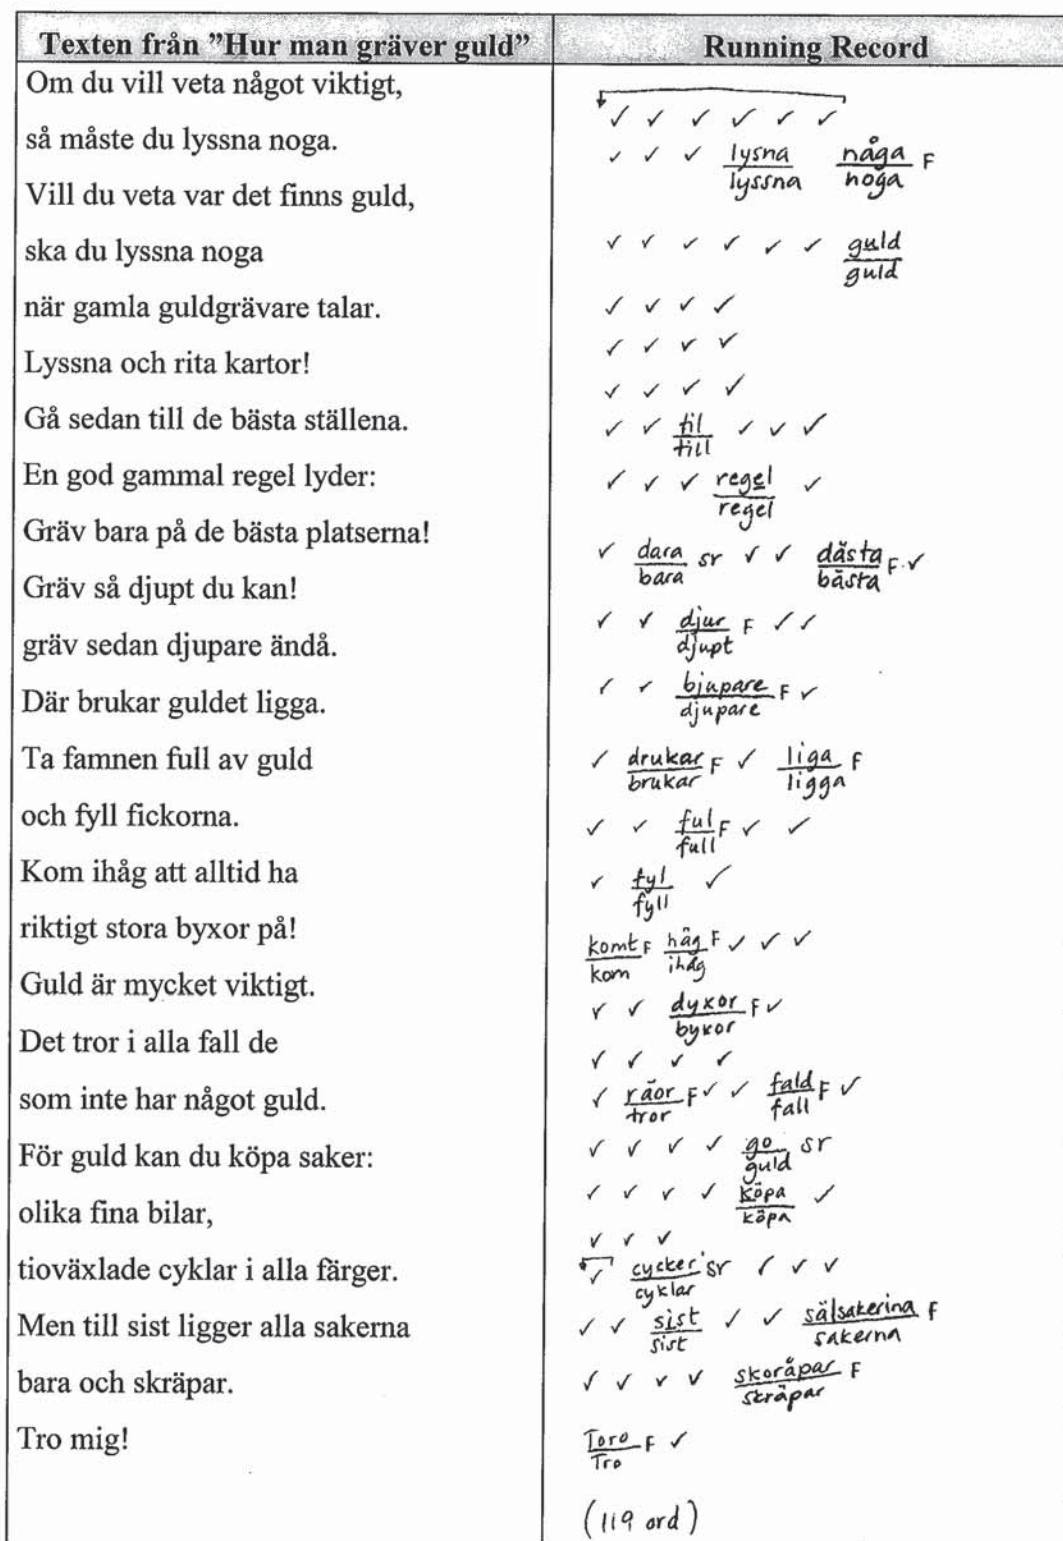 Texten från ”Hur man gräver guld”
Running Record
Om du vill veta något viktigt,
så måste du lyssna noga.
Vill du veta var det finns guld,
ska du lyssna noga
när gamla guldgrävare talar.
Lyssna och rita kartor!
Gå sedan till de bästa ställena.
En god gammal regel lyder:
Gräv bara på de bästa platserna!
Gräv så djupt du kan!
gräv sedan djupare ändå.
Där brukar guldet ligga.
Ta famnen full av guld
och fyll fickorna.
Kom ihåg att alltid ha
riktigt stora byxor på!
Guld är mycket viktigt.
Det tror i alla fall de
som inte har något guld.
För guld kan du köpa saker:
olika fina bilar,
tioväxlade cyklar i alla färger.
Men till sist ligger alla sakerna
bara och skräpar.
Tro mig!
✓ ✓ ✓ ✓ ✓ ✓
✓ ✓ ✓ lysna någa F
lyssna noga
✓ ✓ ✓ ✓ ✓ ✓ guld
guld
✓ ✓ ✓ ✓
✓ ✓ ✓ ✓
✓ ✓ ✓ ✓
✓ ✓ til ✓ ✓ ✓
till
✓ ✓ ✓ regel ✓
regel
✓ dara sr ✓ ✓ dästa F ✓
bara bästa
✓ ✓ djur F ✓ ✓
djupt
✓ ✓ bjupare F ✓
djupare
✓ drukar F ✓ liga F
brukar ligga
✓ ✓ ful F ✓ ✓
full
✓ fyl ✓
fyll
komt F håg F ✓ ✓ ✓
kom ihåg
✓ ✓ dyxor F ✓
byxor
✓ ✓ ✓ ✓
✓ råor F ✓ ✓ fald F ✓
tror fall
✓ ✓ ✓ ✓ go sr
guld
✓ ✓ ✓ ✓ köpa ✓
köpa
✓ ✓ ✓
✓ cycker sr ✓ ✓ ✓
cyklar
✓ ✓ sist ✓ ✓ sälsakerina F
sist sakerna
✓ ✓ ✓ ✓ skoråpar F
skräpar
Toro F ✓
Tro
(119 ord)